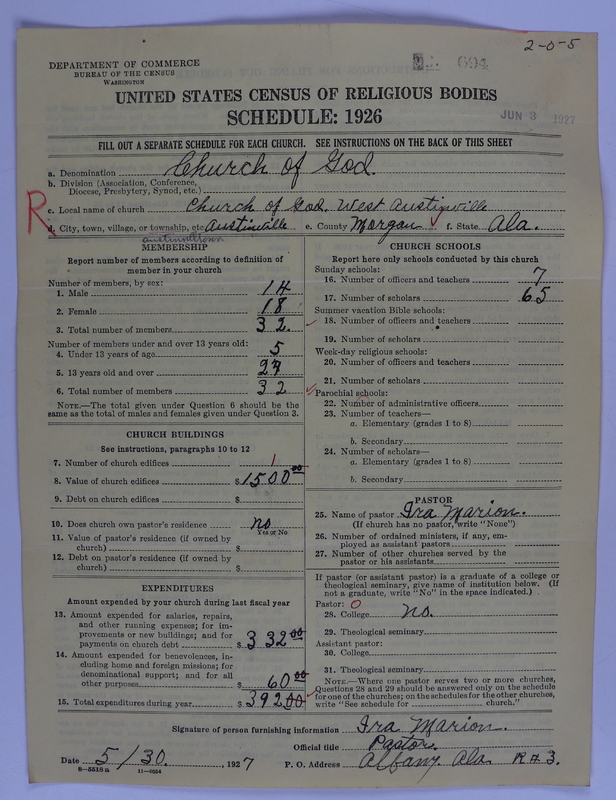 2-0-5
DEPARTMENT OF COMMERCE
BUREAU OF THE CENSUS
WASHINGTON
694
UNITED STATES CENSUS OF RELIGIOUS BODIES
SCHEDULE: 1926
JUN 3 1927
FILL OUT A SEPARATE SCHEDULE FOR EACH CHURCH. SEE INSTRUCTIONS ON THE BACK OF THIS SHEET
a. Denomination Church of God.
b. Division (Association, Conference, Diocese, Presbytery, Synod, etc.)
R
c. Local name of church Church of God. West Austinville
d. City, town, village, or township, etc Austinville e. County Morgan f. State Ala.
MEMBERSHIP
Report number of members according to definition of member in your church
Number of members, by sex:
1. Male 14
2. Female 18
3. Total number of members 32.
Number of members under and over 13 years old:
4. Under 13 years of age 5
5. 13 years old and over 27
6. Total number of members 32
NOTE.—The total given under Question 6 should be the same as the total of males and females given under Question 3.
CHURCH BUILDINGS
See instructions, paragraphs 10 to 12
7. Number of church edifices 1
8. Value of church edifices $1500.00
9. Debt on church edifices $
10. Does church own pastor's residence no
Yes or No
11. Value of pastor's residence (if owned by church) $
12. Debt on pastor's residence (if owned by church) $
EXPENDITURES
Amount expended by your church during last fiscal year
13. Amount expended for salaries, repairs, and other running expenses; for improvements or new buildings; and for payments on church debt $332 00
14. Amount expended for benevolences, including home and foreign missions; for denominational support; and for all other purposes $60.00
15. Total expenditures during year $392 00
CHURCH SCHOOLS
Report here only schools conducted by this church
Sunday schools:
16. Number of officers and teachers 7
17. Number of scholars 65
Summer vacation Bible schools:
18. Number of officers and teachers
19. Number of scholars
Week-day religious schools:
20. Number of officers and teachers
21. Number of scholars
Parochial schools:
22. Number of administrative officers
23. Number of teachers—
a. Elementary (grades 1 to 8)
b. Secondary
24. Number of scholars—
a. Elementary (grades 1 to 8)
b. Secondary
PASTOR
25. Name of pastor Ira Marion.
(If church has no pastor, write "None")
26. Number of ordained ministers, if any, employed as assistant pastors
27. Number of other churches served by the pastor or his assistants
If pastor (or assistant pastor) is a graduate of a college or theological seminary, give name of institution below. (If not a graduate, write "No" in the space indicated.)
Pastor: O
28. College no.
29. Theological seminary
Assistant pastor:
30. College
31. Theological seminary
NOTE.—Where one pastor serves two or more churches, Questions 28 and 29 should be answered only on the schedule for one of the churches; on the schedules for the other churches, write "See schedule for church."
Signature of person furnishing information Ira Marion.
Official title Pastor.
Date 5/30., 1927 P. O. Address Albany. Ala R#3.
8-5518a 11-9054